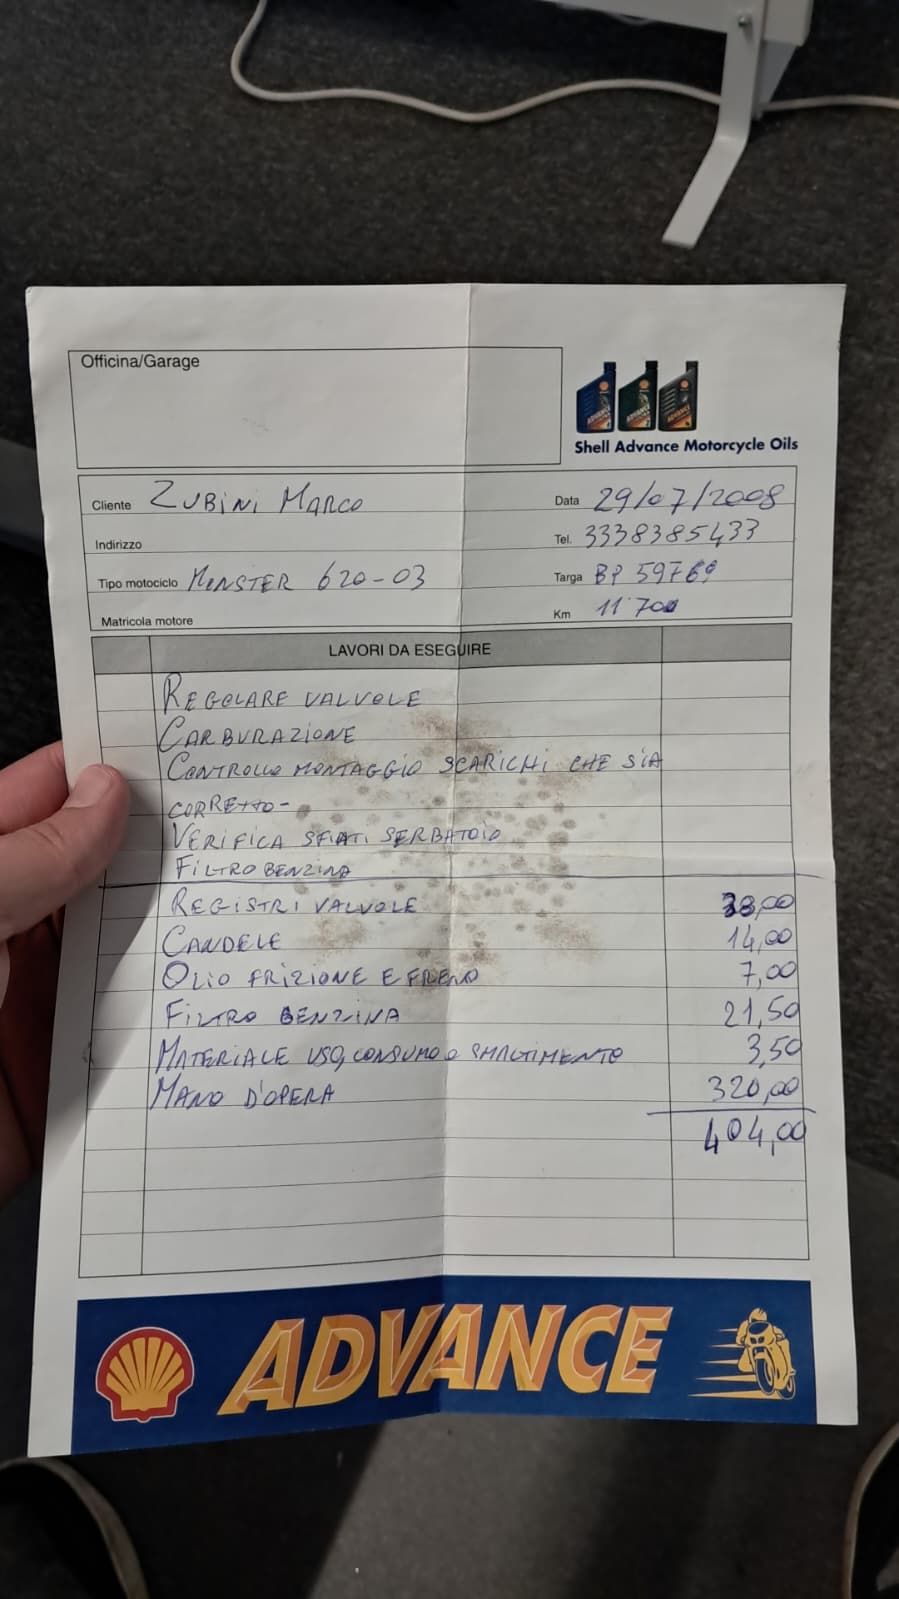 Officina/Garage
ADVANCE ADVANCE ADVANCE
Shell Advance Motorcycle Oils
Cliente ZUBINI MARCO
Data 29/07/2008
Indirizzo
Tel. 3338385433
Tipo motociclo MONSTER 620-03
Targa BP 59769
Matricola motore
Km 11700
LAVORI DA ESEGUIRE
REGOLARE VALVOLE
CARBURAZIONE
CONTROLLO MONTAGGIO SCARICHI CHE SIA
CORRETTO-
VERIFICA SFIATI SERBATOIO
FILTRO BENZINA
REGISTRI VALVOLE 38,00
CANDELE 14,00
OLIO FRIZIONE E FRENO 7,00
FILTRO BENZINA 21,50
MATERIALE USO, CONSUMO e SMALTIMENTO 3,50
MANO D'OPERA 320,00
404,00
ADVANCE